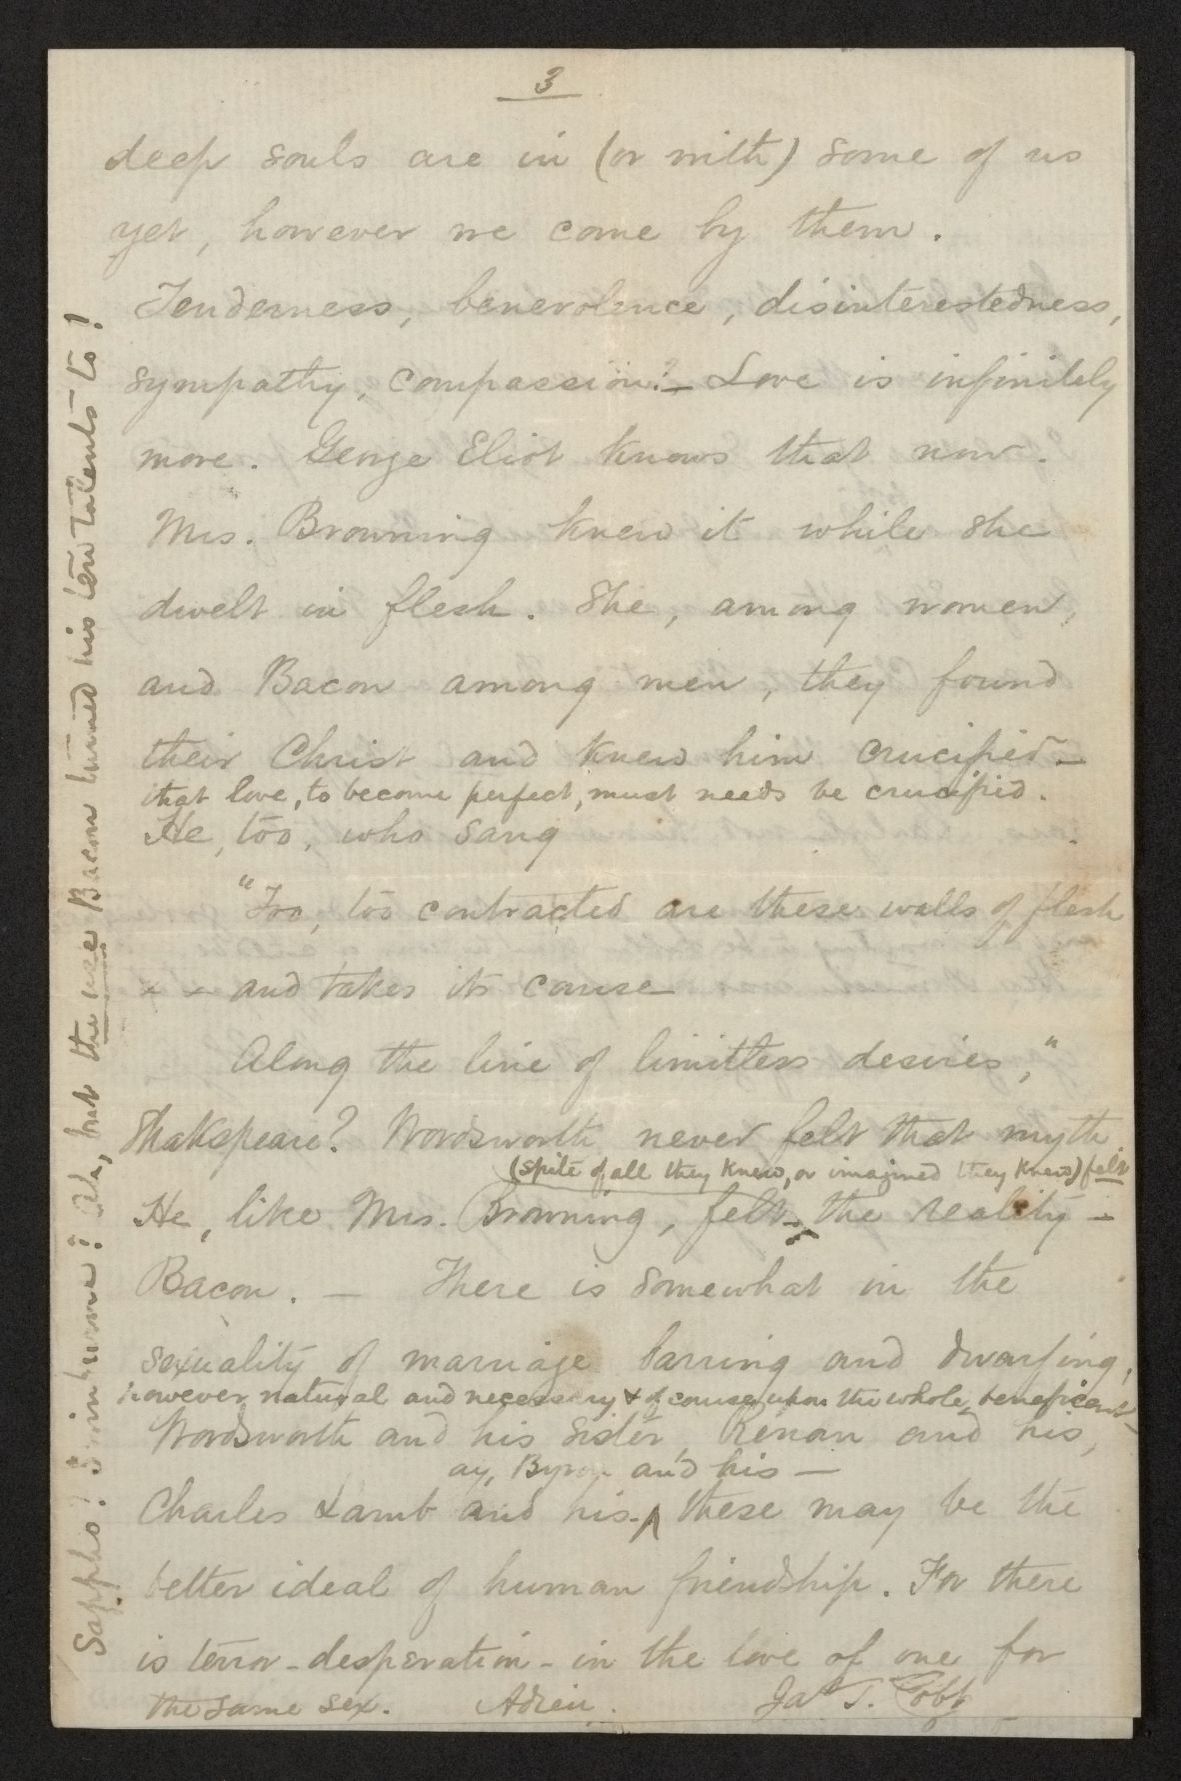 3
deep souls are in (or with) some of us
yet, however we come by them.
Tenderness, benevolence, disinterestedness,
sympathy, compassion? — Love is infinitely
more. George Eliot knows that now.
Mrs. Browning knew it while she
dwelt in flesh. She, among women,
and Bacon among men, they found
their Christ and knew him crucified —
that love, to become perfect, must needs be crucified.
He, too, who sang
"Too, too contracted are these walls of flesh
- - and takes its course
Along the line of limitless desires,"
Shakspeare? Wordsworth never felt that myth
(spite of all they knew, or imagined they knew) felt
He, like Mrs. Browning, felt the reality —
Bacon. — There is somewhat in the
sexuality of marriage barring and dwarfing,
however natural and necessary & of course, upon the whole, beneficent —
Wordsworth and his sister, Renan and his,
ay, Byron and his —
Charles Lamb and his ^ these may be the
better ideal of human friendship. For there
is terror - desperation - in the love of one for
the same sex. Adieu. Jas T. Cobb
Sappho? Swinburne? Ah, but the use Bacon turned his ten talents to!